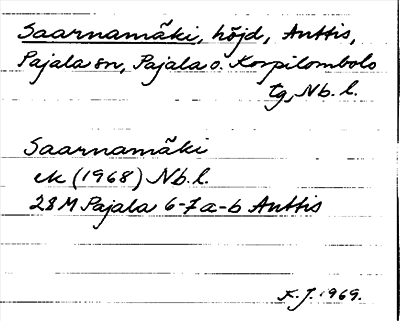 Saarnamäki, höjd, Anttis,
Pajala sn, Pajala o. Korpilombolo
tg, Nb. l.
Saarnamäki
ek (1968) Nb. l.
28 M Pajala 6-7 a-b Anttis
F. J. 1969.